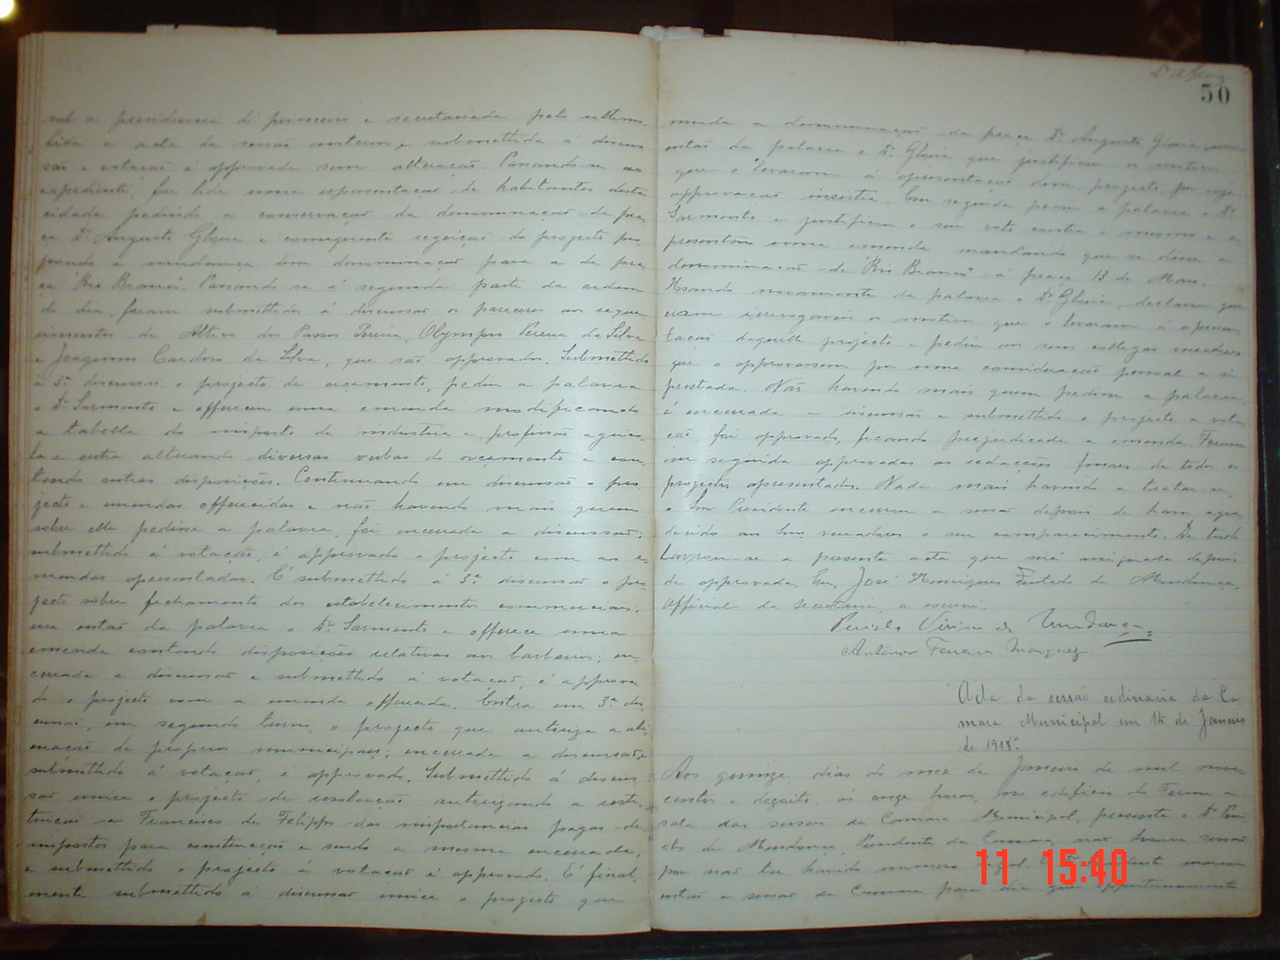 sob a presidencia do primeiro e secretariada pelo ultimo.
Lida a acta da sessão anterior e submettida á discus
são e votação é approvada sem alteração. Passando-se ao
expediente, foi lida uma representação de habitantes desta
cidade pedindo a conservação da denominação da pra
ça Dr. Augusto Gloria e consequente regeição do projecto pro
pondo a mudança dessa denominação para a de pra
ça "Rio Branco". Passando-se á segunda parte da ordem
do dia, foram submettidos á discussão os pareceres aos reque
rimentos de Altivo dos Passos Pereira, Olympio Pereira da Silva
e Joaquim Cardoso da Silva, que são approvados. Submettido
á 3ª discussão o projecto de orçamento, pediu a palavra
o Dr. Sarmento e offereceu uma emenda modificando
a tabella do imposto de industria e profissão
e outra alterando diversas verbas do orçamento e con
tendo outras disposições. Continuando em discussão o pro
jecto e emendas offerecidas e não havendo mais quem
sobre elle pedisse a palavra, foi encerrada a discussão;
submettido á votação, é approvado o projecto com as e
mendas apresentadas. É submettido á 3ª discussão o pro
jecto sobre fechamento dos estabelecimentos commerciaes;
usa então da palavra o Dr. Sarmento e offerece uma
emenda contendo disposições relativas aos barbeiros; en
cerrada a discussão e submettido á votação, é approva
do o projecto com a emenda offerecida. Entra em 3ª dis
cussão, em segundo turno, o projecto que autoriza a ali
enação de proprios municipaes; encerrada a discussão,
submettido á votação, é approvado. Submettido á discus
são unica o projecto de resolução autorizando a resti
tuição a Francisco de Filippo das importancias pagas de
impostos para construcção e sendo a mesma encerrada,
e submettido o projecto á votação é approvado. É final
mente submettido á discussão unica o projecto que
50
muda a denominação da praça Dr. Augusto Gloria,
então da palavra o Dr. Gloria que justificou os motivos
que o levaram á apresentação desse projecto por cuja
approvação insistia. Em seguida pediu a palavra o Dr.
Sarmento e justificou o seu voto contra o mesmo e a
presentou uma emenda mandando que se désse a
denominação de "Rio Branco" á praça 13 de Maio.
Usando novamente da palavra o Dr. Gloria, declarou que
eram irrevogaveis os motivos que o levaram á apresen
tação daquelle projecto e pediu aos seus collegas vereadores
que o approvassem por uma consideração pessoal a si
prestada. Não havendo mais quem pedisse a palavra,
é encerrada a discussão e submettido o projecto a vota
ção foi approvado, ficando prejudicada a emenda. Foram
em seguida approvadas as redacções finaes de todos os
projectos apresentados. Nada mais havendo a tratar-se,
o Snr. Presidente encerrou a sessão depois de haver agra
decido aos Snrs. vereadores o seu comparecimento. De tudo
lavrou-se a presente acta que será assignada depois
de approvada. Eu, José Henriques Furtado de Mendonça,
official da secretaria, a escrevi.
Pericles Vieira de Mendonça
Antenor Ferreira Marques
Acta da sessão ordinaria da Ca
mara Municipal em 15 de Janeiro
de 1918.
Aos quinze dias do mez de Janeiro de mil nove
centos e dezoito, ás onze horas, no edificio do Forum e
sala das sessões da Camara Municipal, presente o Dr. Peri
cles de Mendonça, Presidente da Camara, não houve sessão
por não ter havido numero legal. O Presidente marcou
então a sessão da Camara para dia que opportunamente
11 15:40